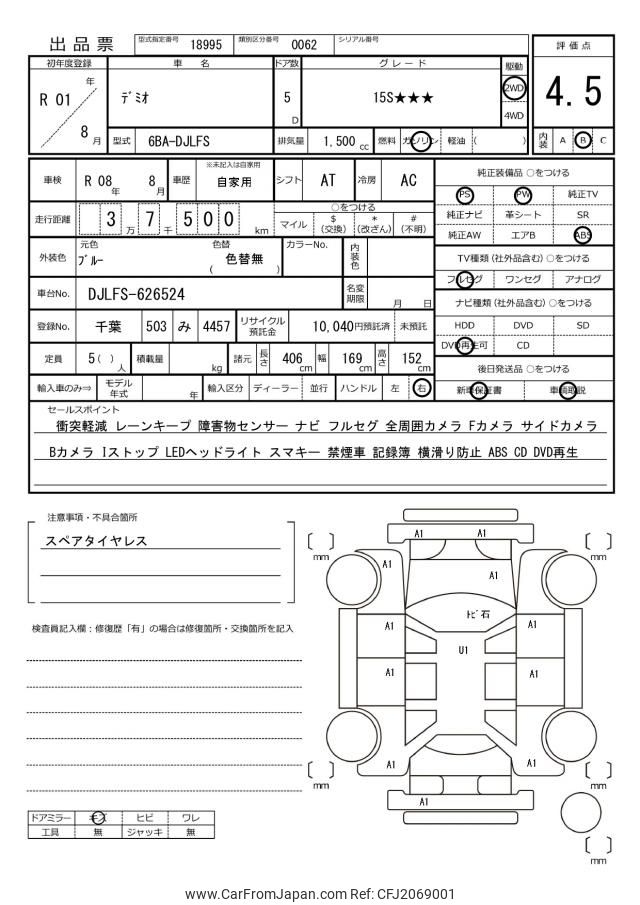 出品票 型式指定番号 18995 類別区分番号 0062 シリアル番号
評価点
4.5
内装 A B C
初年度登録 車名 ドア数 グレード 駆動
R 01 年 8 月 デミオ 5 D 15S★★★ 2WD 4WD
型式 6BA-DJLFS 排気量 1,500 cc 燃料 ガソリン 軽油 ( )
車検 R 08 年 8 月 車歴 ※未記入は自家用 自家用 シフト AT 冷房 AC
走行距離 3 万 7 千 5 0 0 km ○をつける
マイル $ (交換) * (改ざん) # (不明)
外装色 元色 ブルー 色替 ( 色替無 ) カラーNo. 内装色
車台No. DJLFS-626524 名変期限 月 日
登録No. 千葉 503 み 4457 リサイクル預託金 10,040円預託済 未預託
定員 5 ( ) 人 積載量 kg 諸元 長さ 406 cm 幅 169 cm 高さ 152 cm
輸入車のみ⇒ モデル年式 年 輸入区分 ディーラー 並行 ハンドル 左 右
純正装備品 ○をつける
PS PW 純正TV
純正ナビ 革シート SR
純正AW エアB ABS
TV種類 (社外品含む) ○をつける
フルセグ ワンセグ アナログ
ナビ種類 (社外品含む) ○をつける
HDD DVD SD
DVD再生可 CD
後日発送品 ○をつける
新車保証書 車輌取説
セールスポイント
衝突軽減 レーンキープ 障害物センサー ナビ フルセグ 全周囲カメラ Fカメラ サイドカメラ
Bカメラ Iストップ LEDヘッドライト スマキー 禁煙車 記録簿 横滑り防止 ABS CD DVD再生
注意事項・不具合箇所
スペアタイヤレス
検査員記入欄：修復歴「有」の場合は修復箇所・交換箇所を記入
ドアミラー キズ ヒビ ワレ
工具 無 ジャッキ 無
A1 A1 A1
mm mm
A1 A1
トビ石
A1 A1
U1
A1 A1
A1 A1
mm mm
A1
mm
www.CarFromJapan.com Ref: CFJ2069001